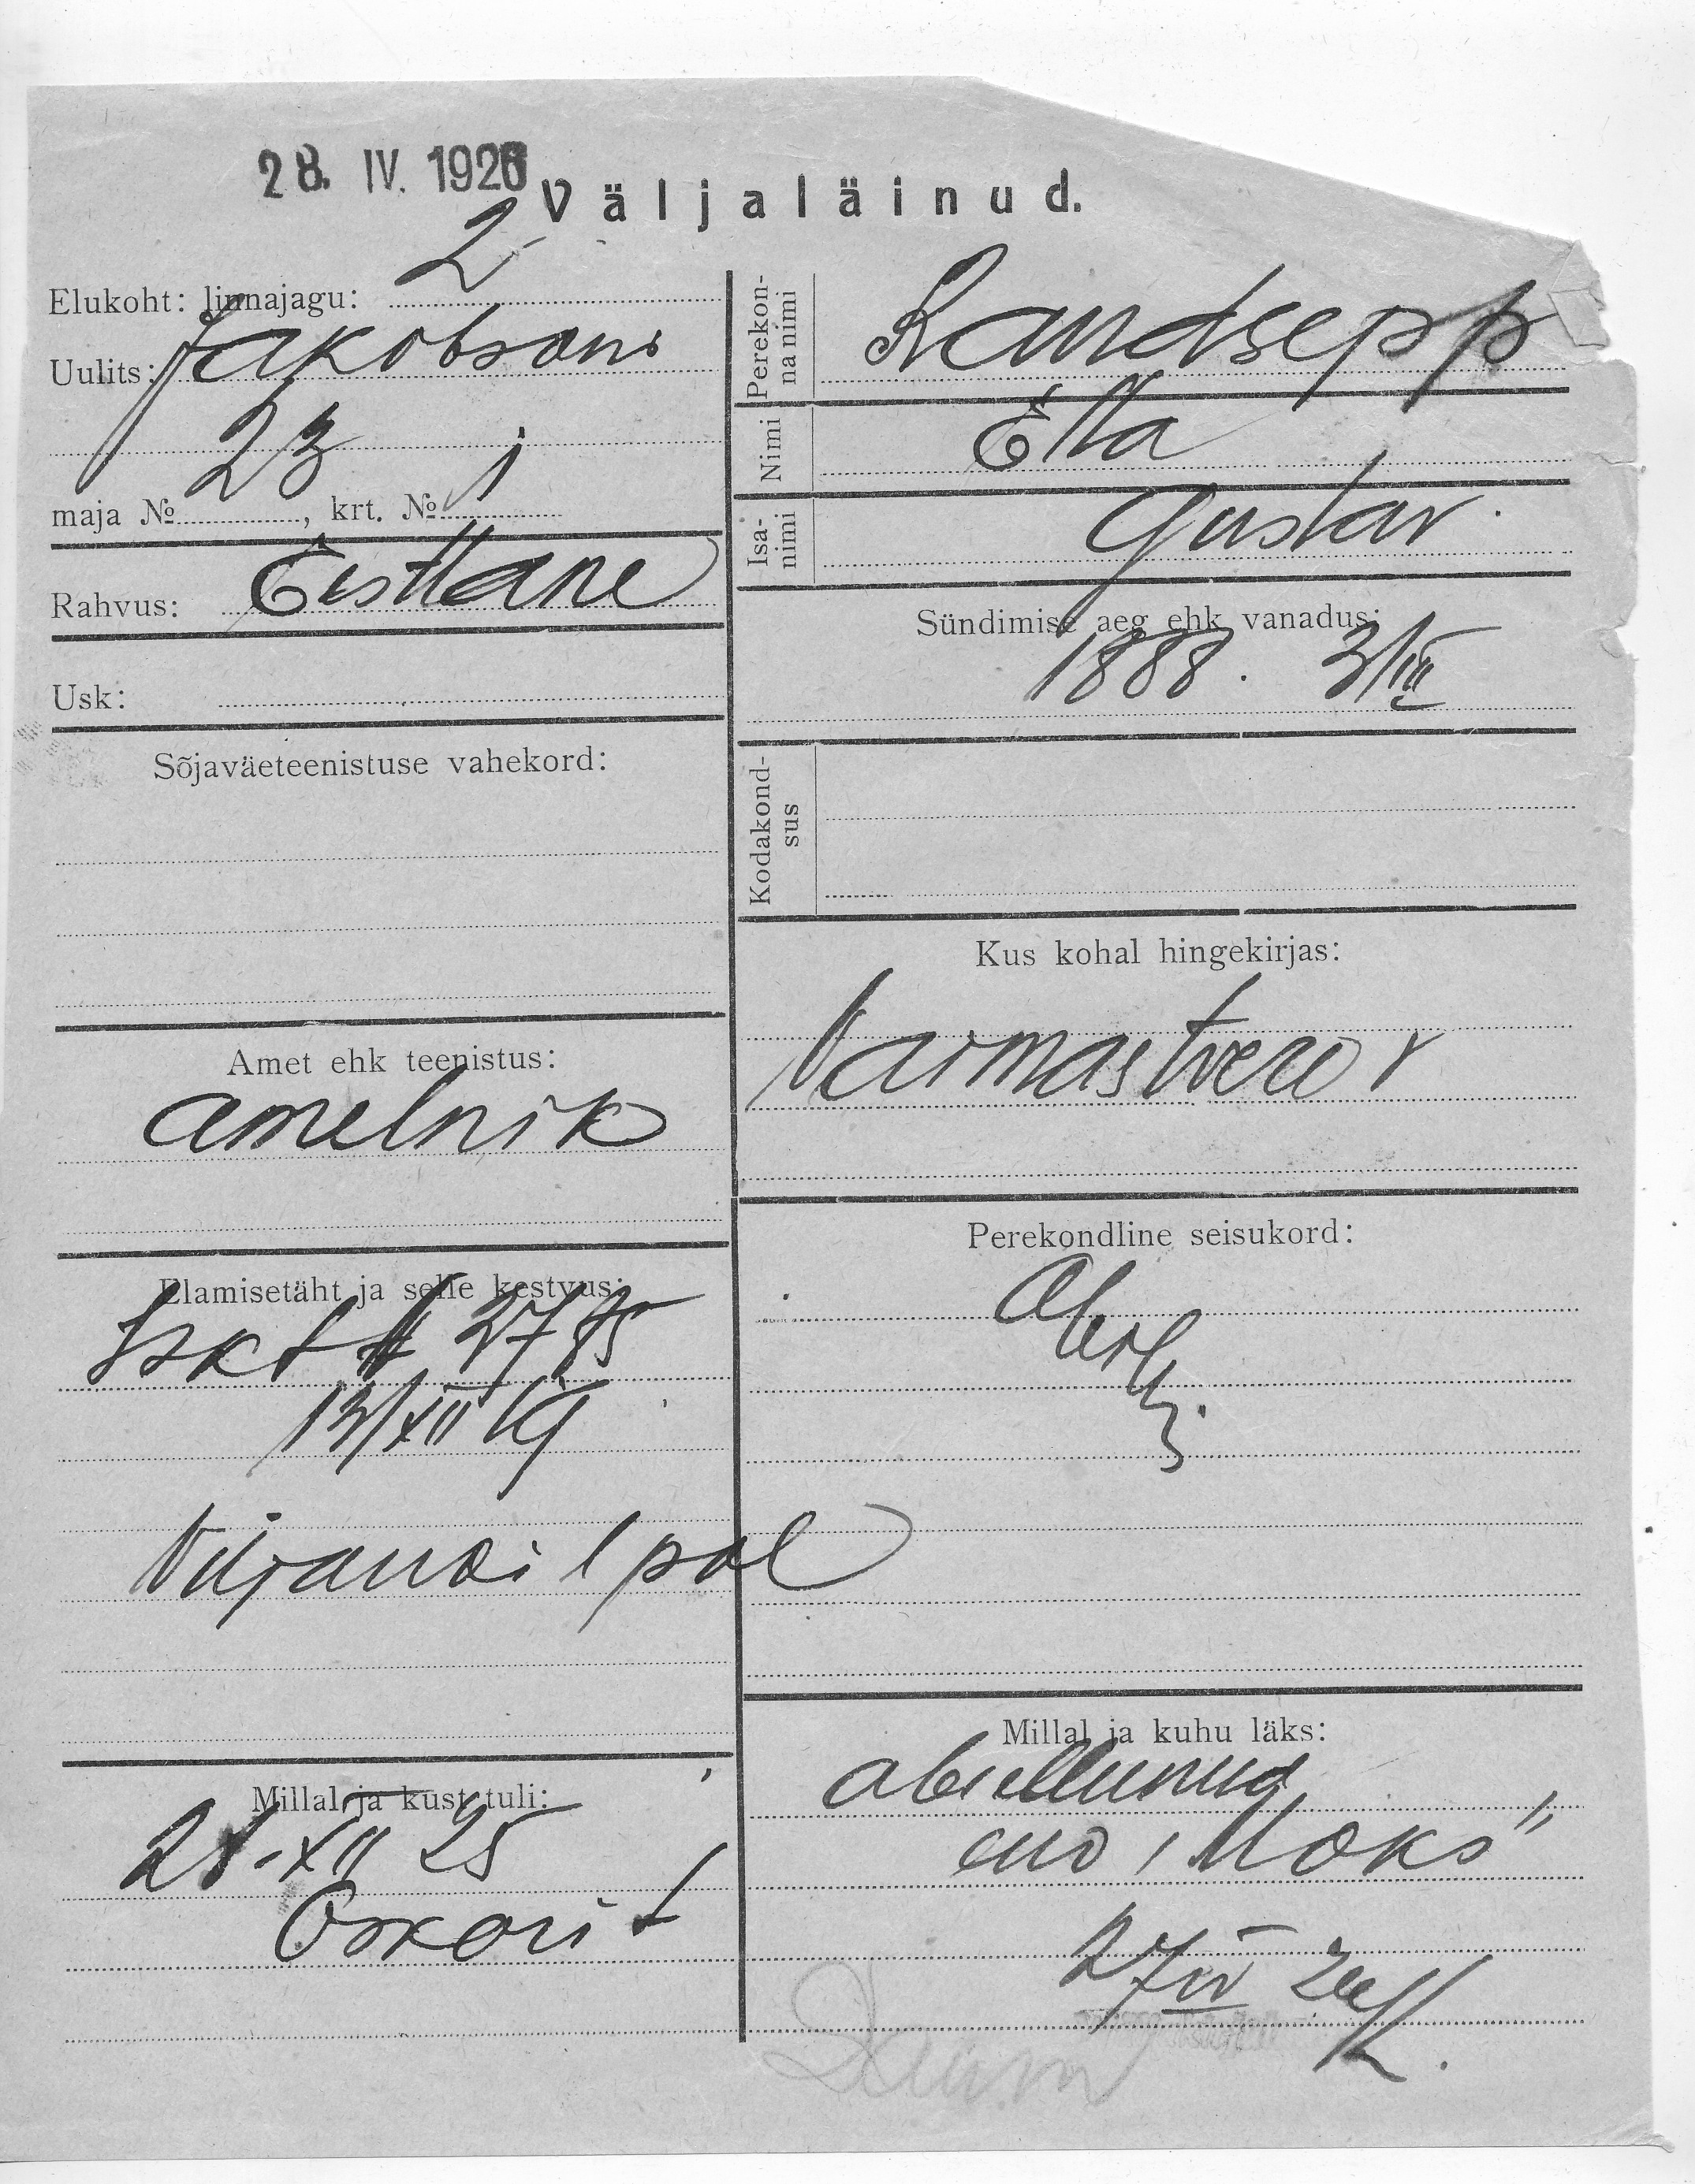 28. IV. 1926
Väljaläinud.
Elukoht: linnajagu: 2
Uulits: Jakobsoni
maja № 23, krt. № 1
Rahvus: Eestlane
Usk:
Sõjaväeteenistuse vahekord:
Amet ehk teenistus:
ametnik
Elamisetäht ja selle kestvus:
Iskt № 2785
13/XII 19
Viljandi l pol
Millal ja kust tuli:
28.XII 25
Perekonna nimi
Randsepp
Nimi
Ella
Isanimi
Gustav
Sündimise aeg ehk vanadus:
1888. 3/III
Kodakondsus
Kus kohal hingekirjas:
Vaimastvere v
Perekondline seisukord:
Millal ja kuhu läks:
abiellunud
end „Moks"
27 IV 26